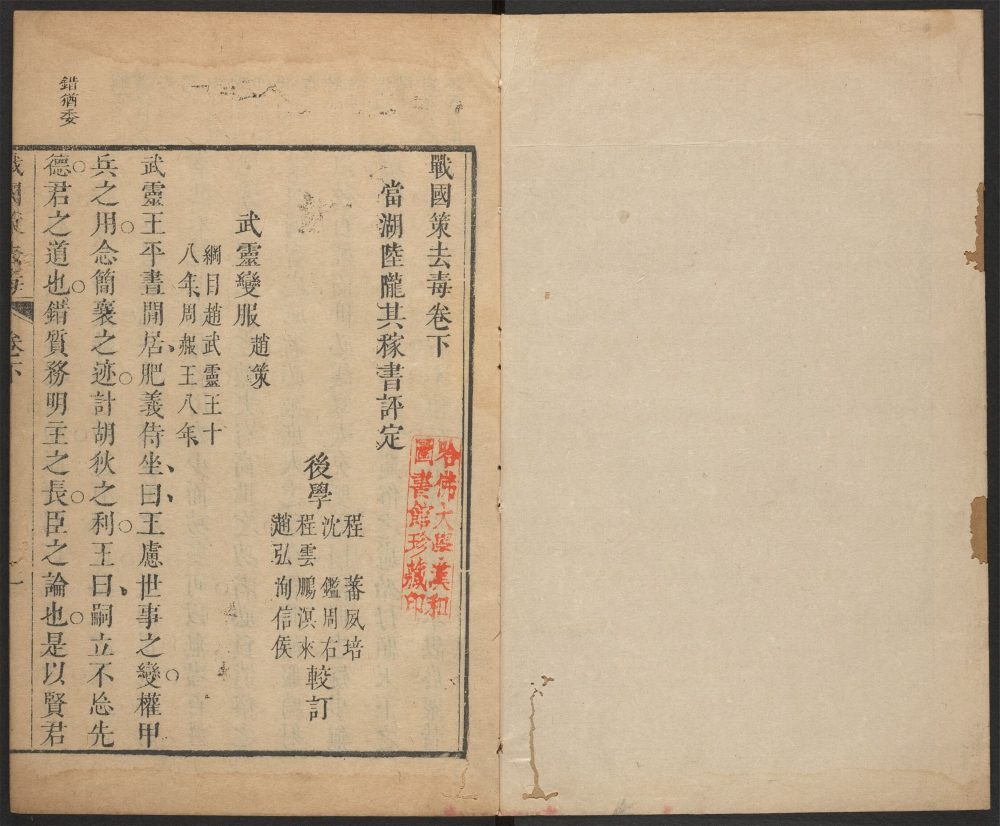 戰國策去毒卷下
當湖陸隴其稼書評定
後學
程 蕃夙培
沈 鑑周右
程雲鵬溟來
趙弘洵信侯
較訂
武靈變服 趙策
綱目趙武靈王十
八年、周赧王八年、
武靈王平晝閒居、肥義侍坐、曰、王慮世事之變○權甲
兵之用○念簡襄之迹○計胡狄之利○王曰、嗣立不忘先
德○君之道也○錯質務明主之長○臣之論也○是以賢君
錯猶委
戰國策去毒 卷下 一
哈佛大學漢和
圖書館珍藏印